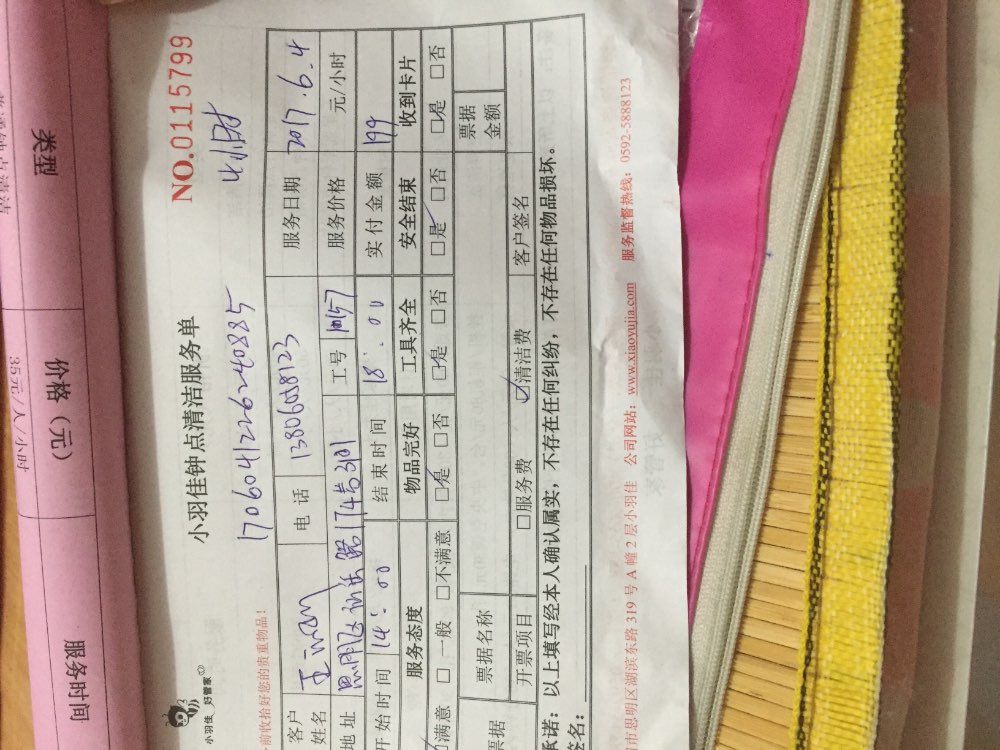 NO.0115799
小羽佳 好管家
小羽佳钟点清洁服务单
4小时
前收拾好您的贵重物品！
1706041226240885
客户姓名 电话 13806028123 服务日期 2017.6.4
地址 174号 工号 服务价格 元/小时
开始时间 14:00 结束时间 18:00 实付金额 199
服务态度 物品完好 工具齐全 安全结束 收到卡片
满意 □一般 □不满意 □是 □否 □是 □否 □是 □否 □是 □否
票据 票据名称 票据金额
开票项目 □服务费 ☑清洁费 客户签名
承诺：以上填写经本人确认属实，不存在任何纠纷，不存在任何物品损坏。
签名：
市思明区湖滨东路 319 号 A 幢 2 层小羽佳 公司网站：www.xiaoyujia.com 服务监督热线：0592-5888123
类型 价格（元） 服务时间
35元/人/小时